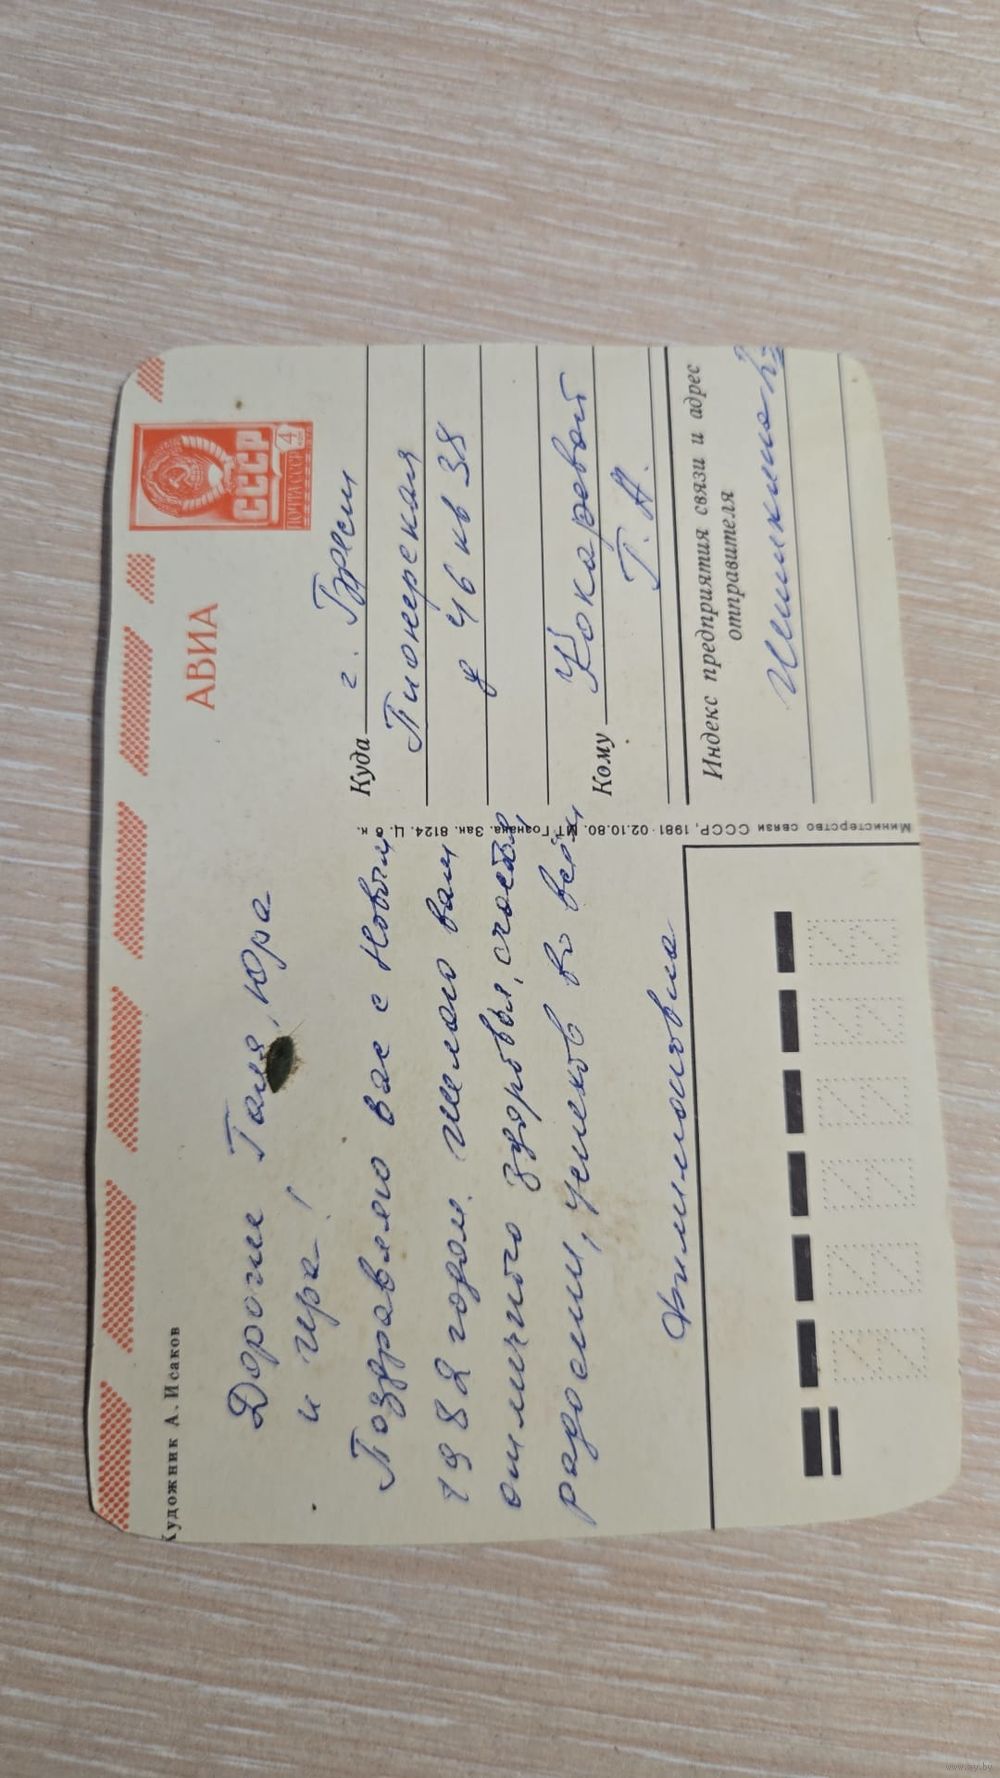 Художник А. Исаков
АВИА
СССР
ПОЧТА СССР 4
Дорогие Галя, Юра
и Ира!
Поздравляю вас с Новым
1982 годом. Желаю вам
отличного здоровья, счастья
радости, успехов во всём
Филимоновна
Министерство связи СССР, 1981. 02.10.80. МТ Гознака. Зак. 8124. Ц. 6 к.
Куда г.
Пионерская
д 46 кв 38
Кому Токаревой
Т. А.
Индекс предприятия связи и адрес
отправителя
www.ay.by